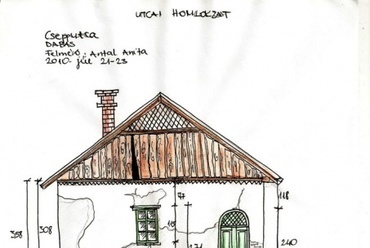 UTCAI HOMLOKZAT
Csepp utca
DABAS
Felmérő: Antal Anita
2010. júl. 21-23
77
118
358
308
240
271